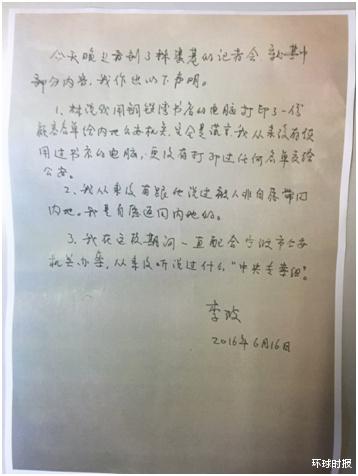 今天晚上看到了林荣基的记者会，就其中
部分内容，我作出以下声明。
1、林说我用铜锣湾书店的电脑打印了一份
名单给内地公安机关，完全是谎言，我从来没有使
用过书店的电脑，更没有打印过任何名单交给
公安。
2、我从来没有跟他说过被人非自愿带回
内地。我是自愿返回内地的。
3、我在这段期间一直配合宁波市公安
机关办案，从来没听说过什么“中央专案组”。
李波
2016年6月16日
环球时报